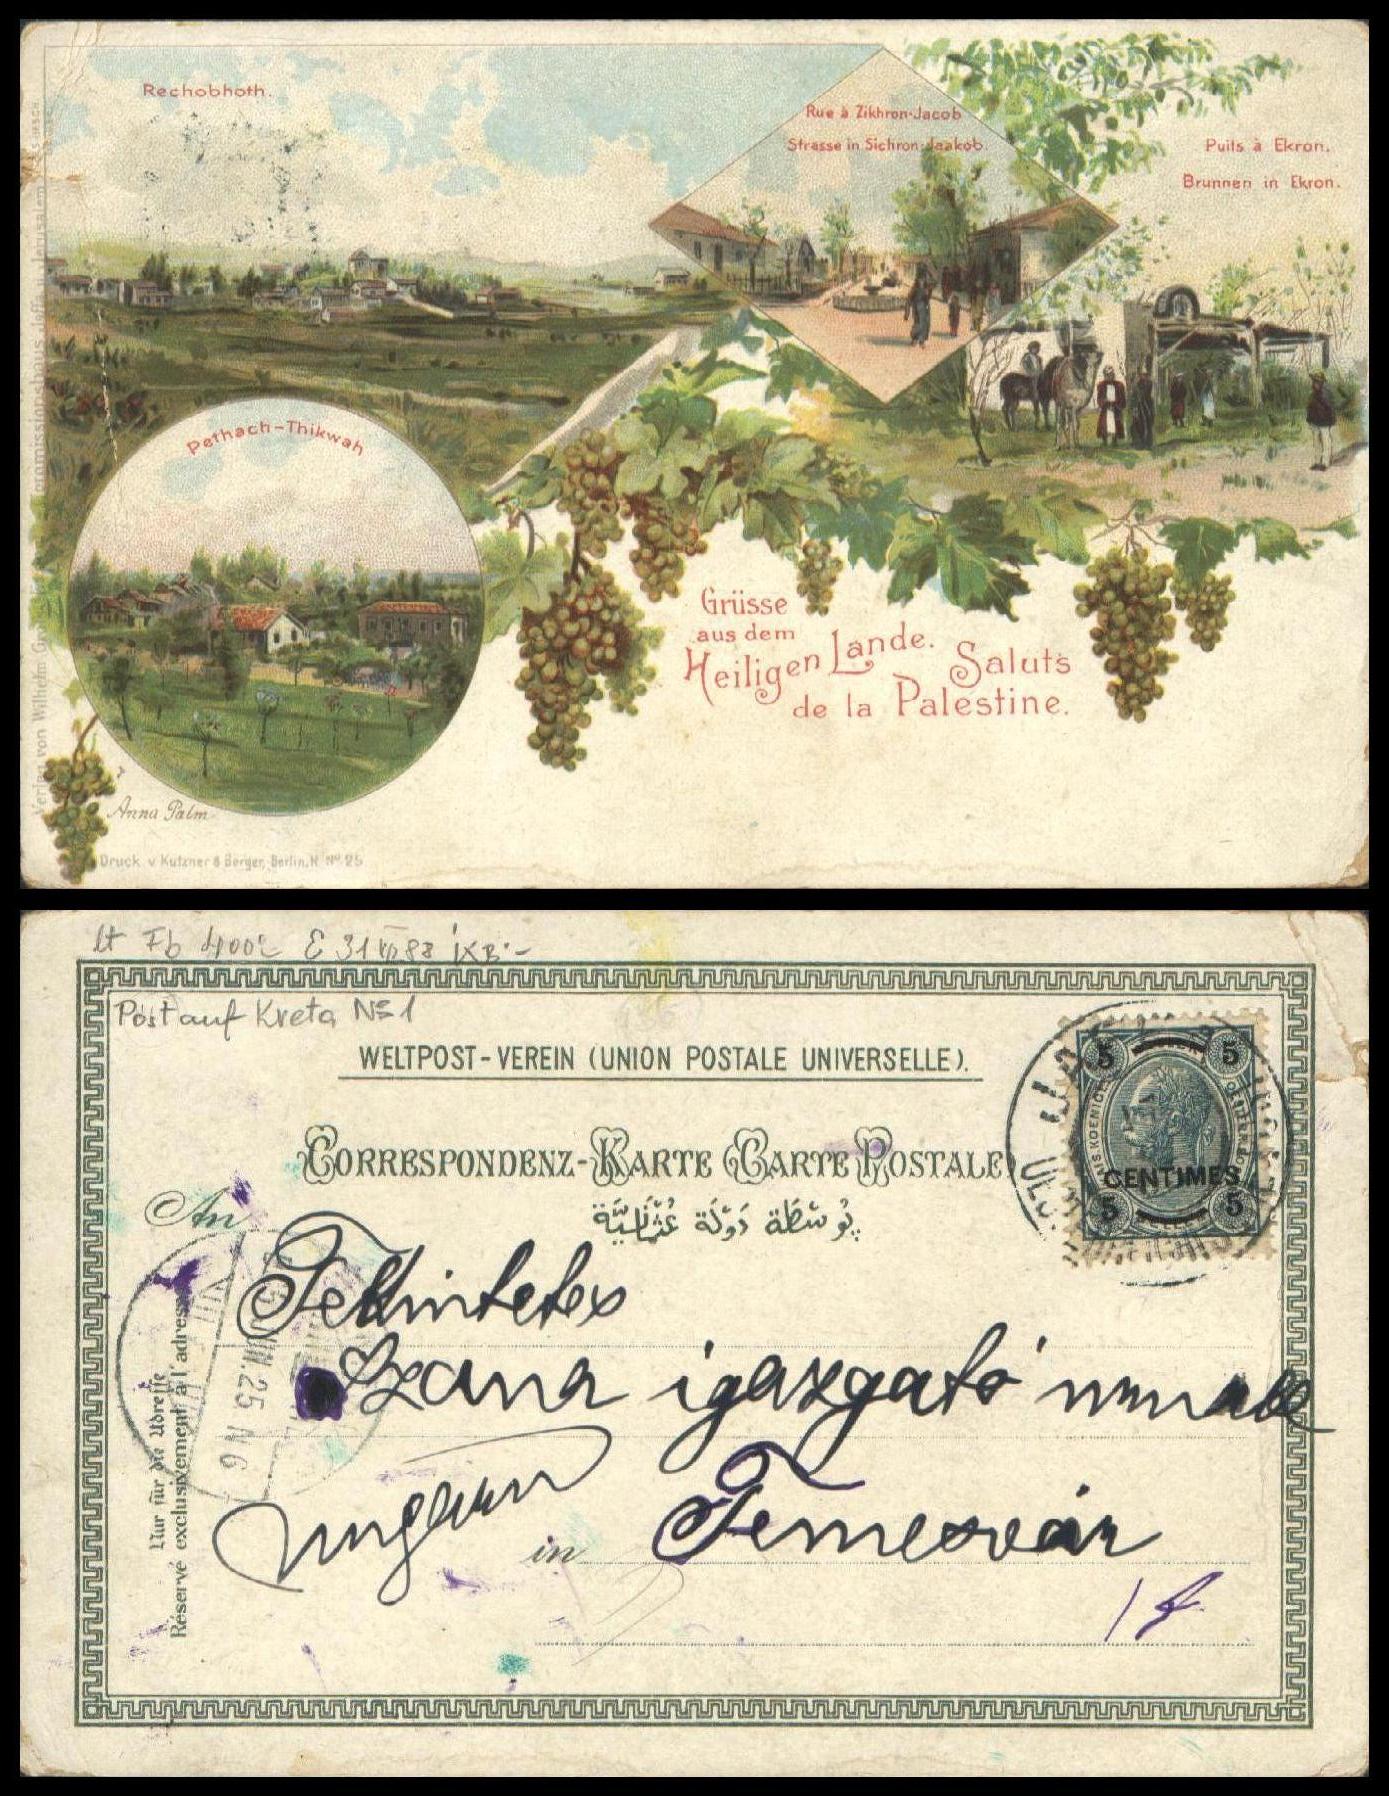 Rechobhoth.
Rue à Zikhron-Jacob
Strasse in Sichron-Jaakob.
Puits à Ekron.
Brunnen in Ekron.
Pethach-Thikwah
Grüsse
aus dem
Heiligen Lande.
Saluts
de la Palestine.
Anna Palm
Druck v Kutzner & Berger, Berlin. N Nº 25
Verlag von Wilhelm
Post auf Kreta No 1
WELTPOST-VEREIN (UNION POSTALE UNIVERSELLE).
CORRESPONDENZ-KARTE (CARTE POSTALE)
پُوسْطَة دَوْلَة عُثْمَانِيَّة
An
5 5
CENTIMES
5 5
Tekintetes
igazgató
Ungarn
in Temesvár
Nur für die Adresse
Réservé exclusivement à l'adresse